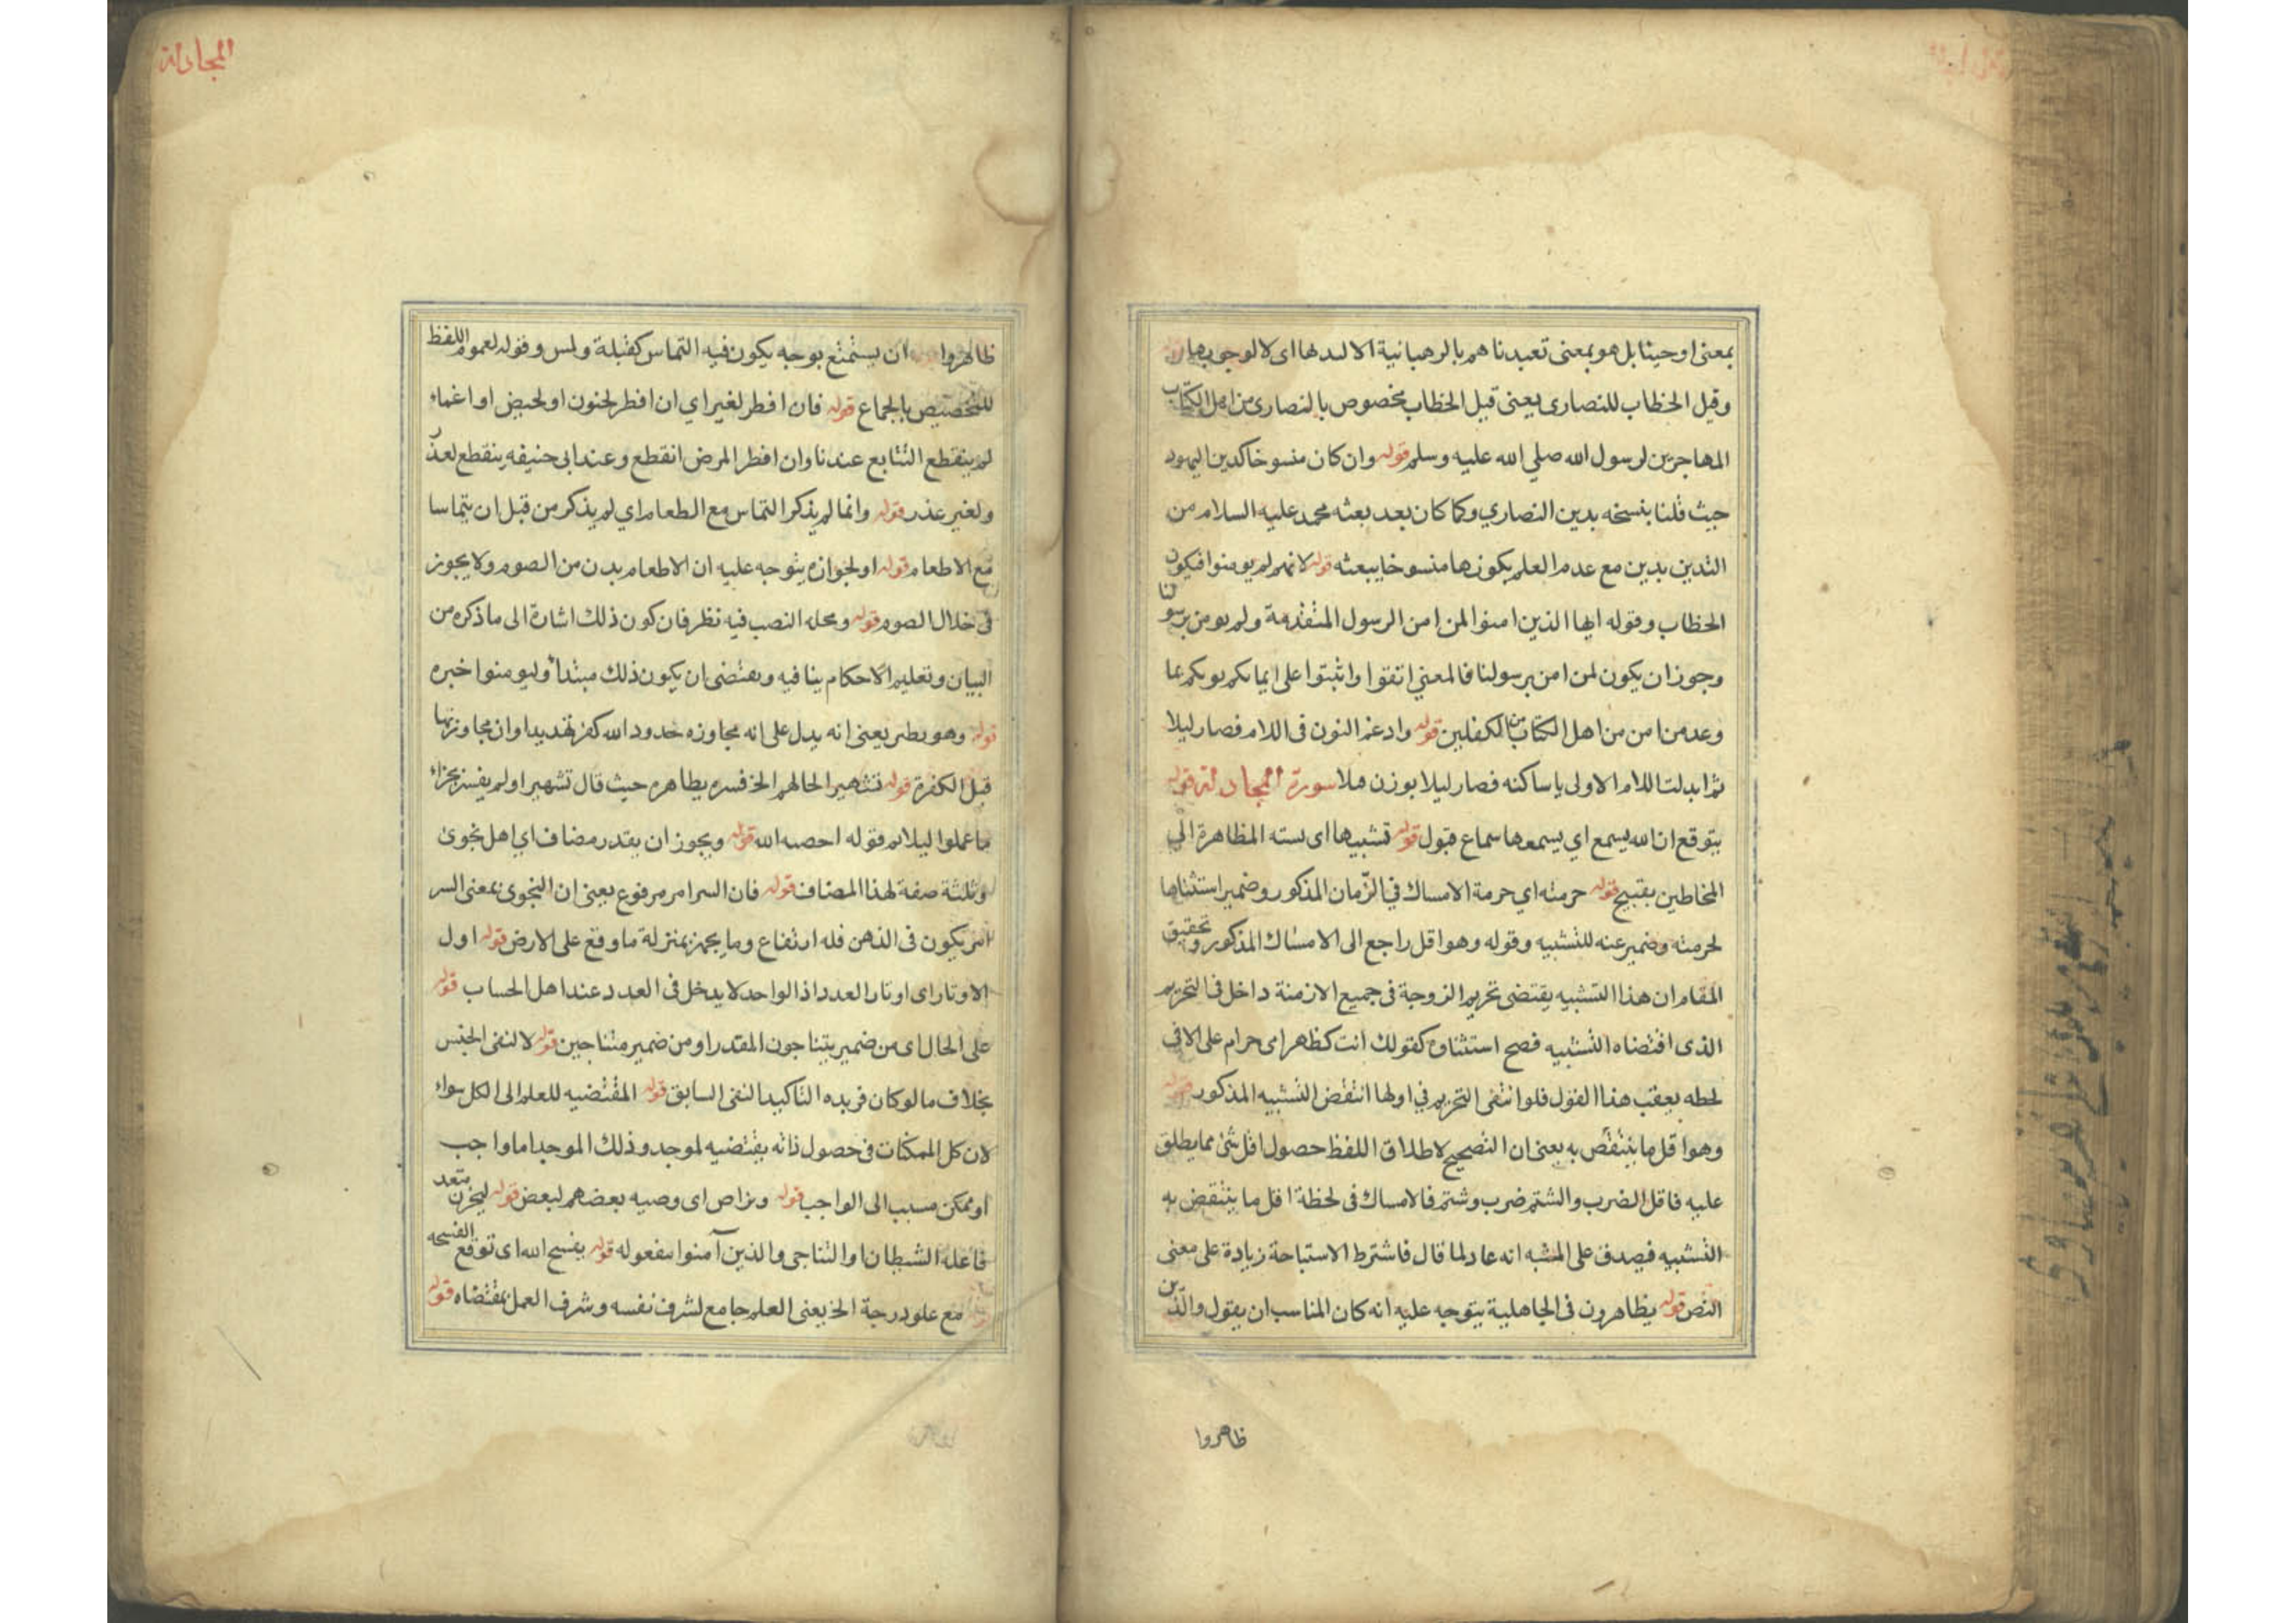 بمعنى اوحينا بل هو بمعنى تعبدناهم بالرهبانية الا لبدلها اى لا لوجوبها
وقيل الخطاب للنصارى يعنى قيل الخطاب مخصوص بالنصارى من اهل الكتاب
المهاجرين لرسول الله صلي الله عليه وسلم قوله وان كان منسوخا كدين اليهود
حيث قلنا بنسخه بدين النصاري وكما كان بعد بعثه محمد عليه السلام من
التدين بدين مع عدم العلم بكونها منسوخا ببعثه قوله لانهم لم يومنوا فيكون
الخطاب وقوله ايها الذين امنوا لمن امن الرسول المتقدمة ولم يومن برسولنا
وجوز ان يكون لمن امن برسولنا فالمعني اتقوا واثبتوا على ايمانكم يوتكم بما
وعد من امن من اهل الكتاب من الكفلين قوله وادغم النون فى اللام فصار ليلا
ثم ابدلت اللام الاولى يا ساكنه فصار ليلا بوزن هلا سورة المجادلة قوله
يتوقع ان الله يسمع اي يسمعها سماع قبول قوله تشبيها اى نسته المظاهرة الي
المخاطبن بقبيح قوله حرمته اي حرمة الامساك في الزمان المذكور وضمير استثناها
لحرمته وضمير عنه للتشبيه وقوله وهو اقل راجع الى الامساك المذكور وتحقيق
المقام ان هذا التشبيه يقتضى تحريم الزوجة فى جميع الازمنة داخل فى التحريم
الذى اقتضاه التشبيه فصح استثناؤه كقولك انت كظهر امى حرام على الا فى
لحظه بعقب هذا القول فلو انتفى التحريم في اولها انتقض التشبيه المذكور قوله
وهو اقل ما ينتقض به يعنى ان التصحيح لاطلاق اللفظ حصول اقل شئ مما يطلق
عليه فاقل الضرب والشتم ضرب وشتم فالامساك فى لحظة اقل ما ينتقض به
التشبيه فيصدق على المشبه انه عاد لما قال فاشترط الاستباحة زيادة على معنى
النص قوله يظاهرون فى الجاهلية يتوجه عليه انه كان المناسب ان يقول والذين
ظاهروا
المجادلة
ظاهروا ان يستمتع بوجه يكون فيه التماس كقبلة ولمس وقوله لعموم اللفظ
للتخصيص بالجماع قوله فان افطر لغير اي ان افطر لجنون او لحيض او اغماء
لم ينقطع التتابع عندنا وان افطر المرض انقطع وعند ابى حنيفه ينقطع لعذر
ولغير عذر قوله وانما لم يذكر التماس مع الطعام اي لم يذكر من قبل ان يتماسا
مع الاطعام قوله او لجوازه يتوجه عليه ان الاطعام بدن من الصوم ولا يجوز
فى خلال الصوم قوله ومحله النصب فيه نظر فان كون ذلك اشارة الى ما ذكره من
البيان وتعليم الاحكام ينافيه ويقتضى ان يكون ذلك مبتدأ وليومنوا خبره
قوله وهو نطير يعنى انه يدل على انه مجاوزه حدود الله كفر تهديدا وان مجاوزتها
قبل الكفرة قوله تشهيرا لحالهم الخ فسره بظاهره حيث قال تشهيرا ولم يفسر بجزاء
ما عملوا ليلا قوله احصه الله قوله ويجوز ان يقدر مضاف اي اهل نجوى
وثلثة صفة لهذا المضاف قوله فان السر امر مرفوع يعنى ان النجوى بمعنى السر
امر يكون فى الذهن فله ارتفاع وما يجهر بمنزلة ما وقع على الارض قوله اول
الاوتار اى اوتار العدد اذ الواحد لا يدخل فى العدد عند اهل الحساب قوله
على الحال اى من ضمير يتناجون المقدر او من ضمير متناجين قوله لا لنفى الجنس
بخلاف ما لو كان فريده التاكيد النفى السابق قوله المقتضيه للعلم الى الكل سواء
لان كل الممكنات فى حصول ذاته يقتضيه لموجد وذلك الموجد اما واجب
او ممكن مسبب الى الواجب قوله وتراص اى وصيه بعضهم لبعض قوله ليحزن متعد
فاعله الشيطان او التناجى والذين آمنوا مفعوله قوله يفسح الله اى توقع الفسحه
مع علو درجة الخ يعنى العلم جامع لشرف نفسه وشرف العمل بمقتضاه قوله